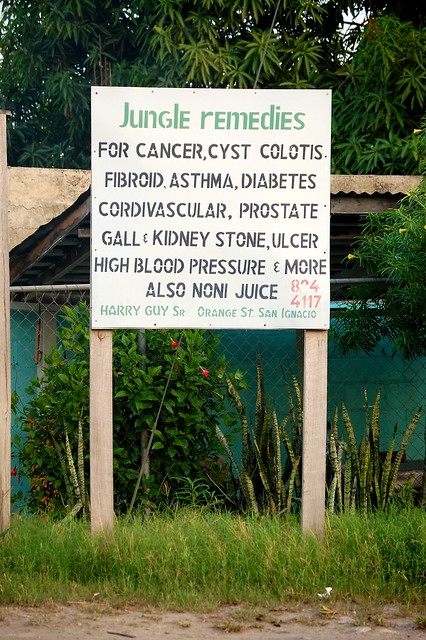 Jungle remedies
FOR CANCER, CYST COLOTIS
FIBROID, ASTHMA, DIABETES
CORDIVASCULAR, PROSTATE
GALL & KIDNEY STONE, ULCER
HIGH BLOOD PRESSURE & MORE
ALSO NONI JUICE 804
4117
HARRY GUY SR ORANGE ST. SAN IGNACIO